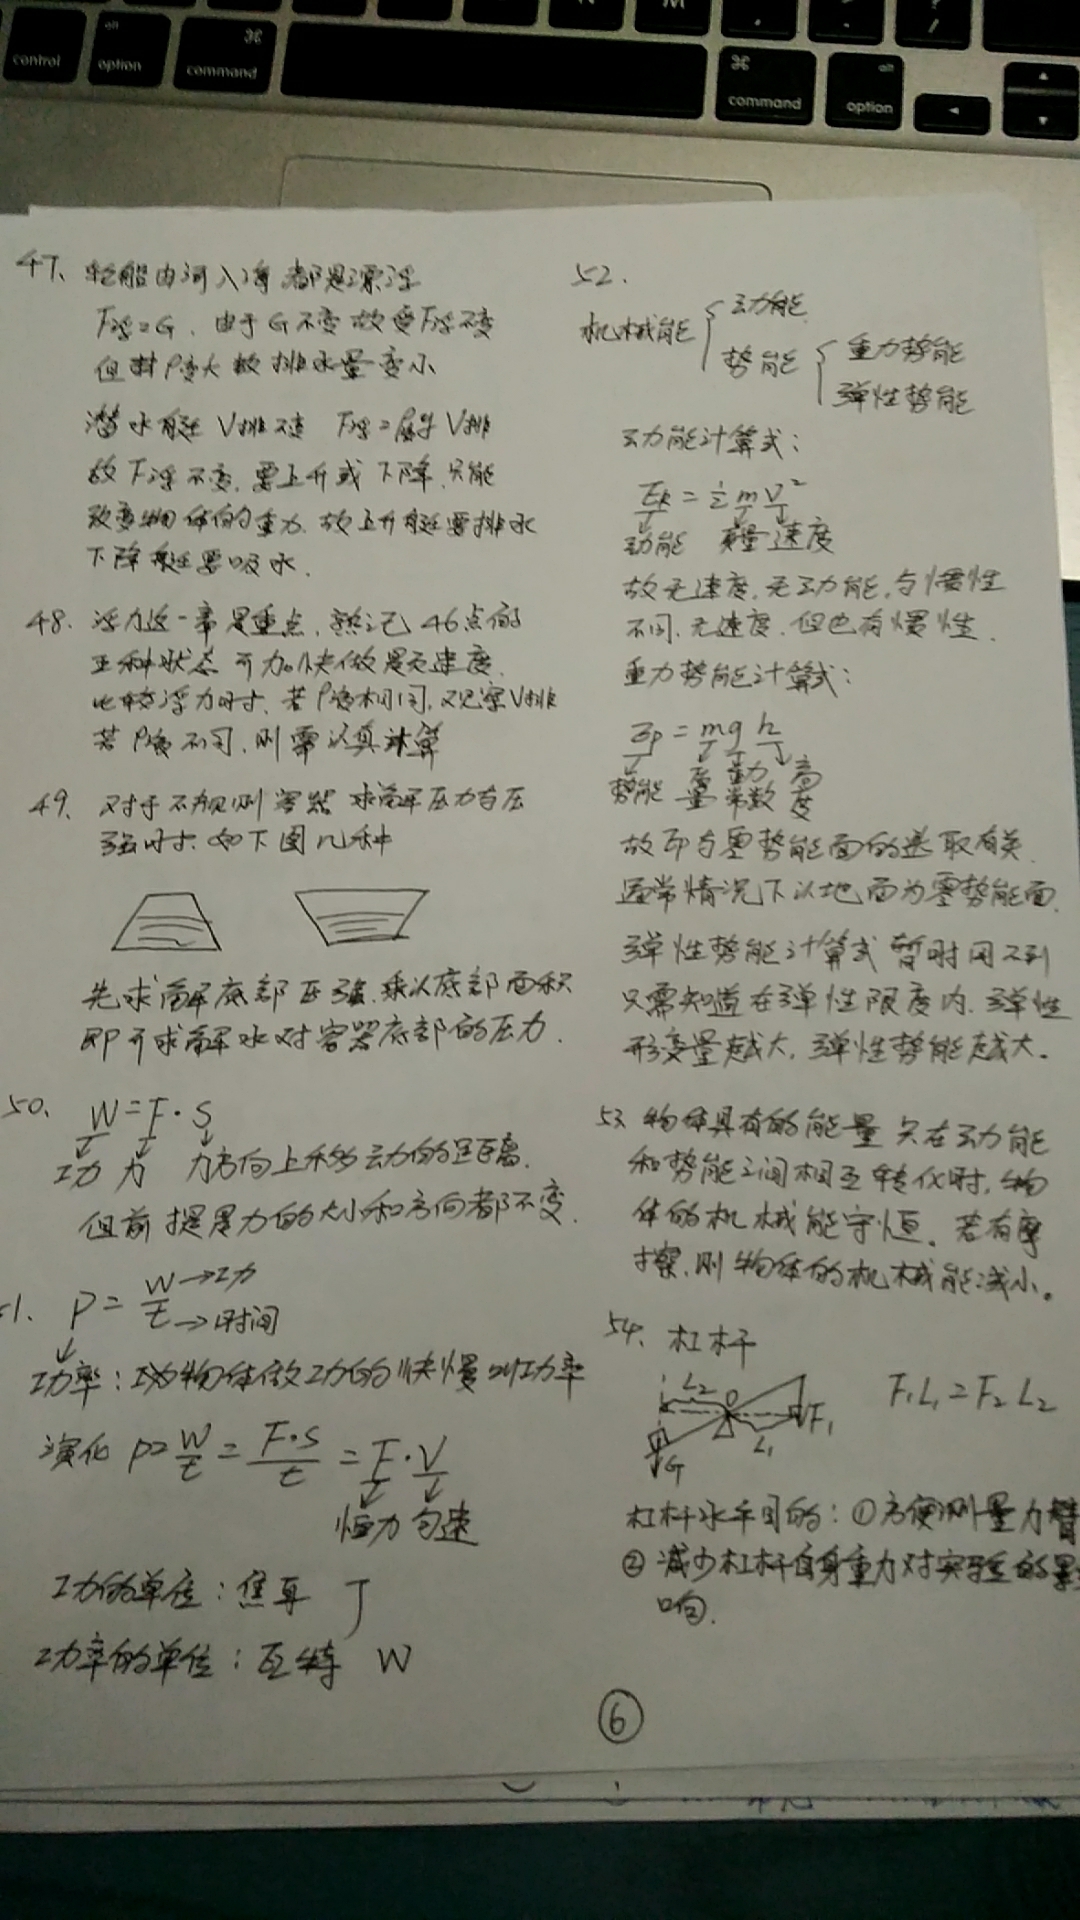 control
alt
option
⌘
command
⌘
command
alt
option
47、轮船由河入海 都是漂浮
F浮=G. 由于G不变 故 F浮不变
但 ρ变大 故排水量变小
潜水艇 V排不变 F浮= V排
故F浮不变. 要上升或下降, 只能
改变物体的重力. 故上升艇要排水
下降艇要吸水.
48. 浮力这一章是重点. 熟记46点的
五种状态 可加快做题速度.
比较浮力时. 若ρ液相同, 观察V排
若ρ液不同, 则需认真计算
49. 对于不规则容器 求解压力与压
强时. 如下图几种
先求解底部压强. 乘以底部面积
即可求解水对容器底部的压力.
50、 W=F·S
功 力 力方向上移动的距离.
但前提是力的大小和方向都不变.
51. P= W/t →功 →时间
功率: 物体做功的快慢叫功率
演化 P=W/t=F·S/t=F·V
恒力 匀速
功的单位: 焦耳 J
功率的单位: 瓦特 W
52.
机械能 { 动能
势能 { 重力势能
弹性势能
动能计算式:
Ek=½mV²
动能 质量 速度
故无速度. 无动能. 与惯性
不同. 无速度. 但也有惯性.
重力势能计算式:
Ep=mgh
势能 质量 常数 高度
故 与零势能面的选取有关.
通常情况下以地面为零势能面.
弹性势能计算式 暂时用不到
只需知道在弹性限度内. 弹性
形变量越大, 弹性势能越大.
53. 物体具有的能量 只在动能
和势能之间相互转化时, 物
体的机械能守恒. 若有摩
擦, 则物体的机械能减小。
54. 杠杆
L2 O F1 L1 G
F1L1=F2L2
杠杆水平目的: ①方便测量力臂
②减少杠杆自身重力对实验的影
响.
⑥